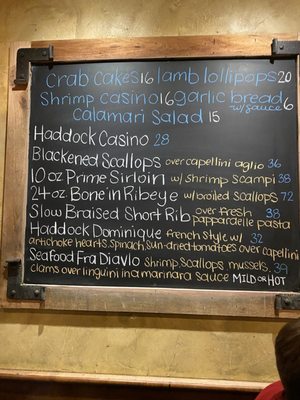 Crab Cakes 16 lamb lollipops 20
Shrimp casino 16 garlic bread
w/sauce 6
Calamari Salad 15
Haddock Casino 28
Blackened Scallops over capellini aglio 36
10 oz Prime Sirloin w/ shrimp scampi 38
24 oz. Bone in Ribeye w/ broiled scallops 72
Slow Braised Short Rib over fresh 38
pappardelle pasta
Haddock Dominique french style w/ 32
artichoke hearts, spinach, sun-dried tomatoes over capellini
Seafood Fra Diavlo shrimp scallops mussels, 39
clams over linguini in a marinara sauce MILD OR HOT